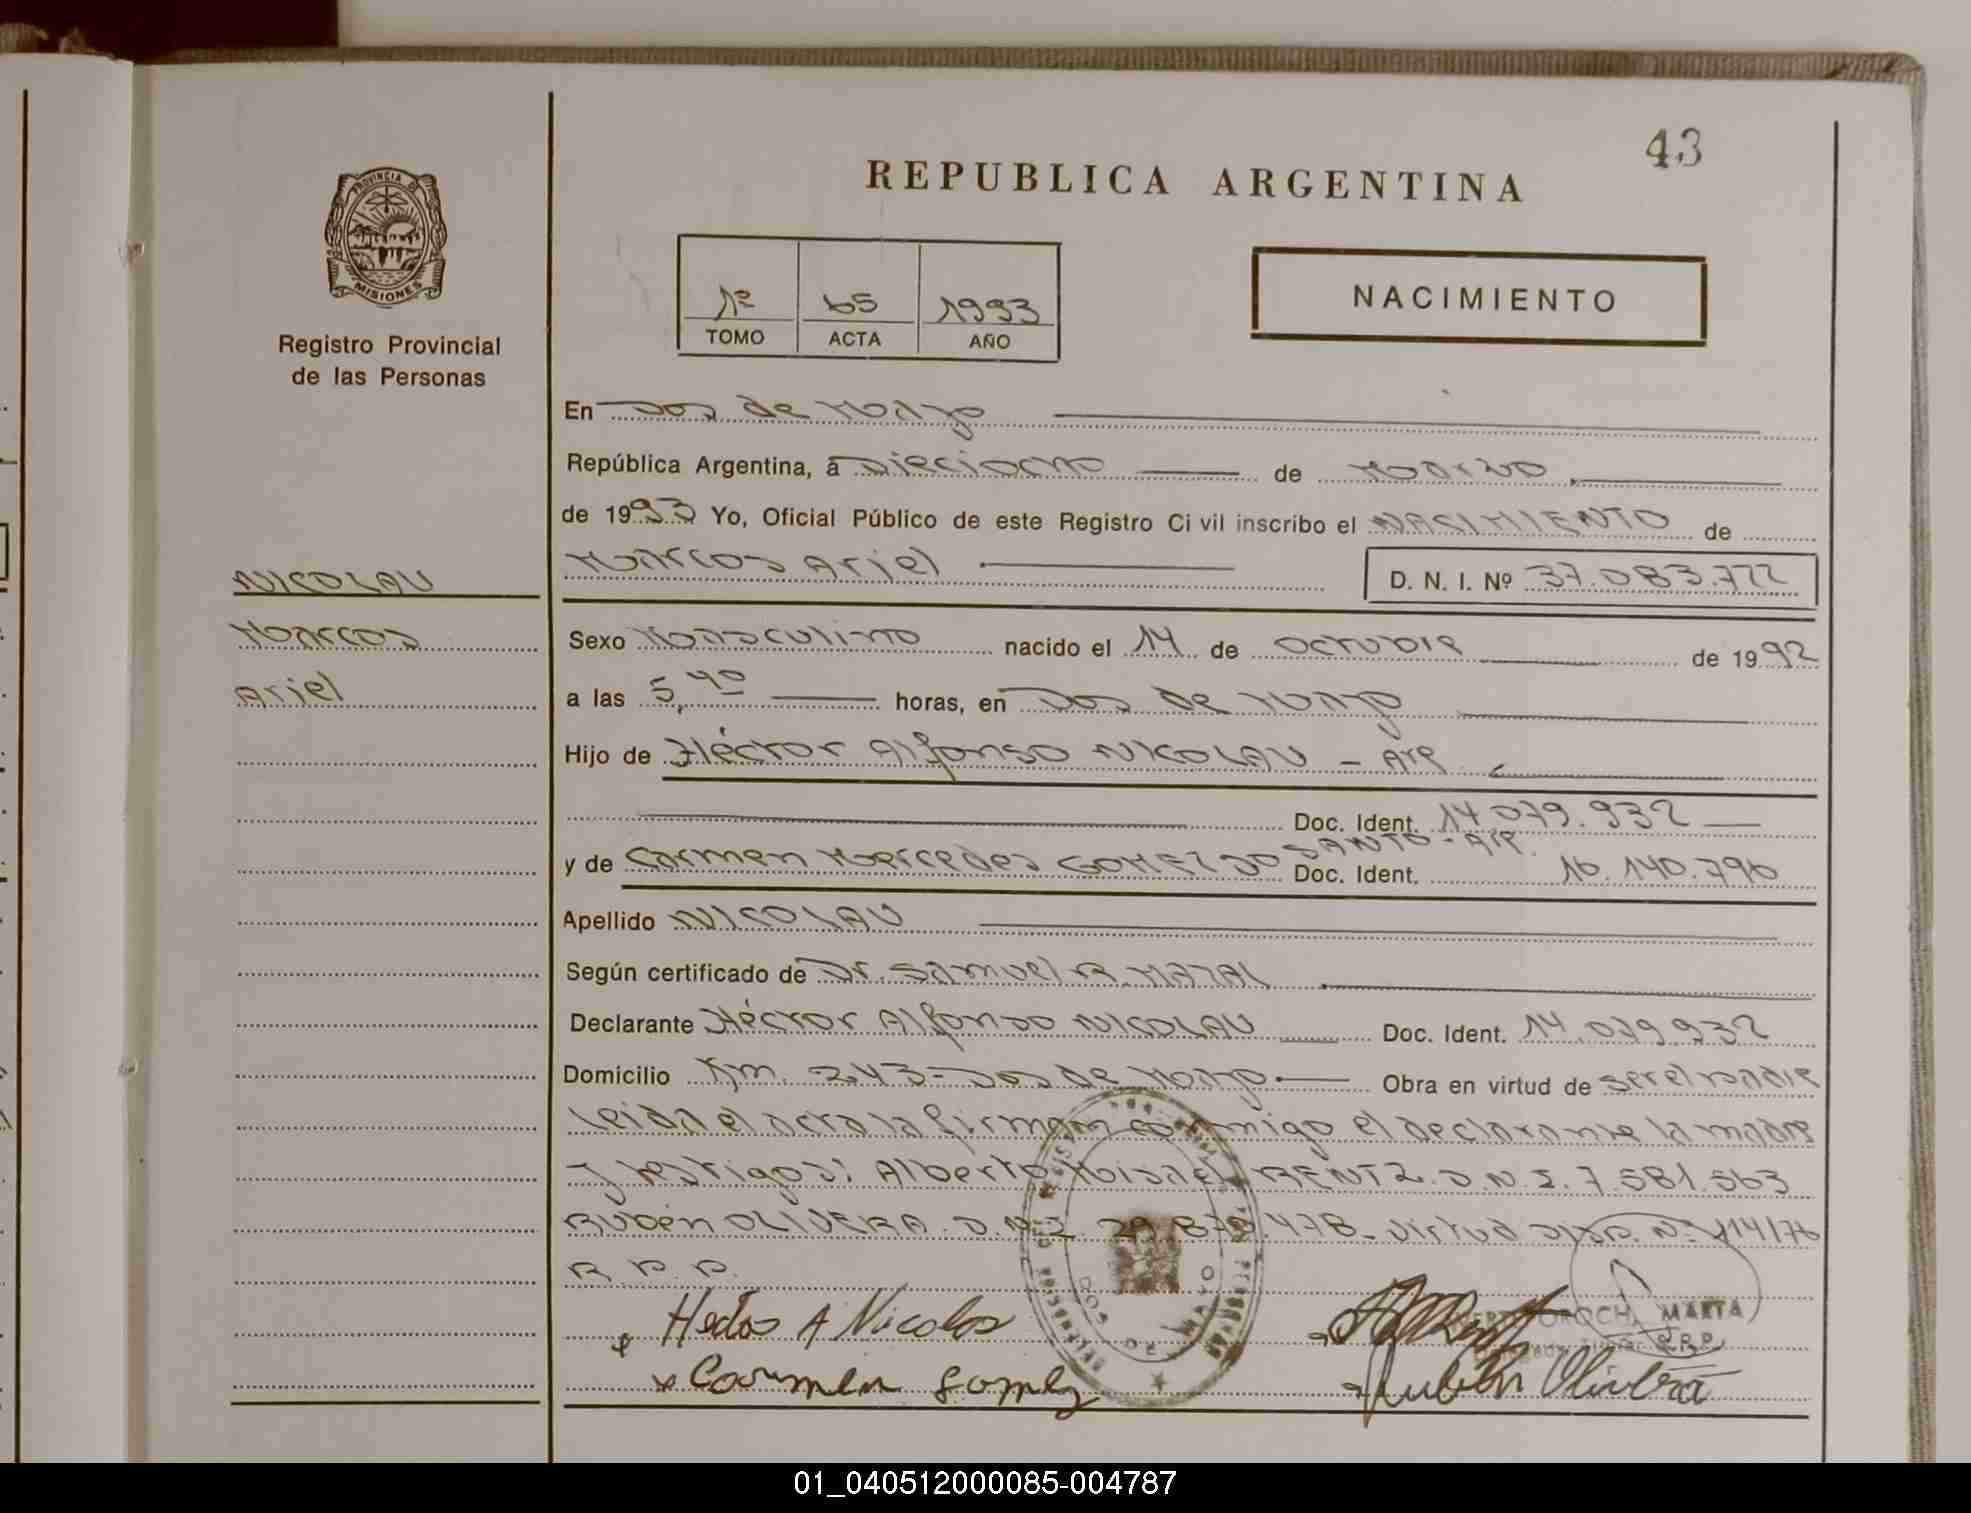 43
REPUBLICA ARGENTINA
PROVINCIA DE
MISIONES
Registro Provincial
de las Personas
1º 65 1993
TOMO ACTA AÑO
NACIMIENTO
En Dos de Mayo
República Argentina, a Dieciocho de Marzo
de 1993 Yo, Oficial Público de este Registro Civil inscribo el NACIMIENTO de
Marcos Ariel D. N. I. Nº 37.083.772
NICOLAU
Marcos
Ariel
Sexo Masculino nacido el 14 de octubre de 1992
a las 5,40 horas, en Dos de Mayo
Hijo de Héctor Alfonso NICOLAU - Arg.
Doc. Ident. 14.079.932
y de Carmen Mercedes GOMEZ DO SANTO - Arg. Doc. Ident. 16.140.796
Apellido NICOLAU
Según certificado de Dr. Samuel R.
Declarante Héctor Alfonso NICOLAU Doc. Ident. 14.079.932
Domicilio Km. 243 - Dos de Mayo Obra en virtud de ser el padre
leida el acta la firman conmigo el declarante la madre
y testigos: Alberto Misael RENTZ. D.N.I. 7.581.563
Rubén OLIVERA. D.N.I. 29.870.478 - virtud Disp. Nº 114/76
R.P.P.
Hector A Nicolau
Carmen Gomez
Rubén Olivera
MARTA
R.P.P.
01_040512000085-004787